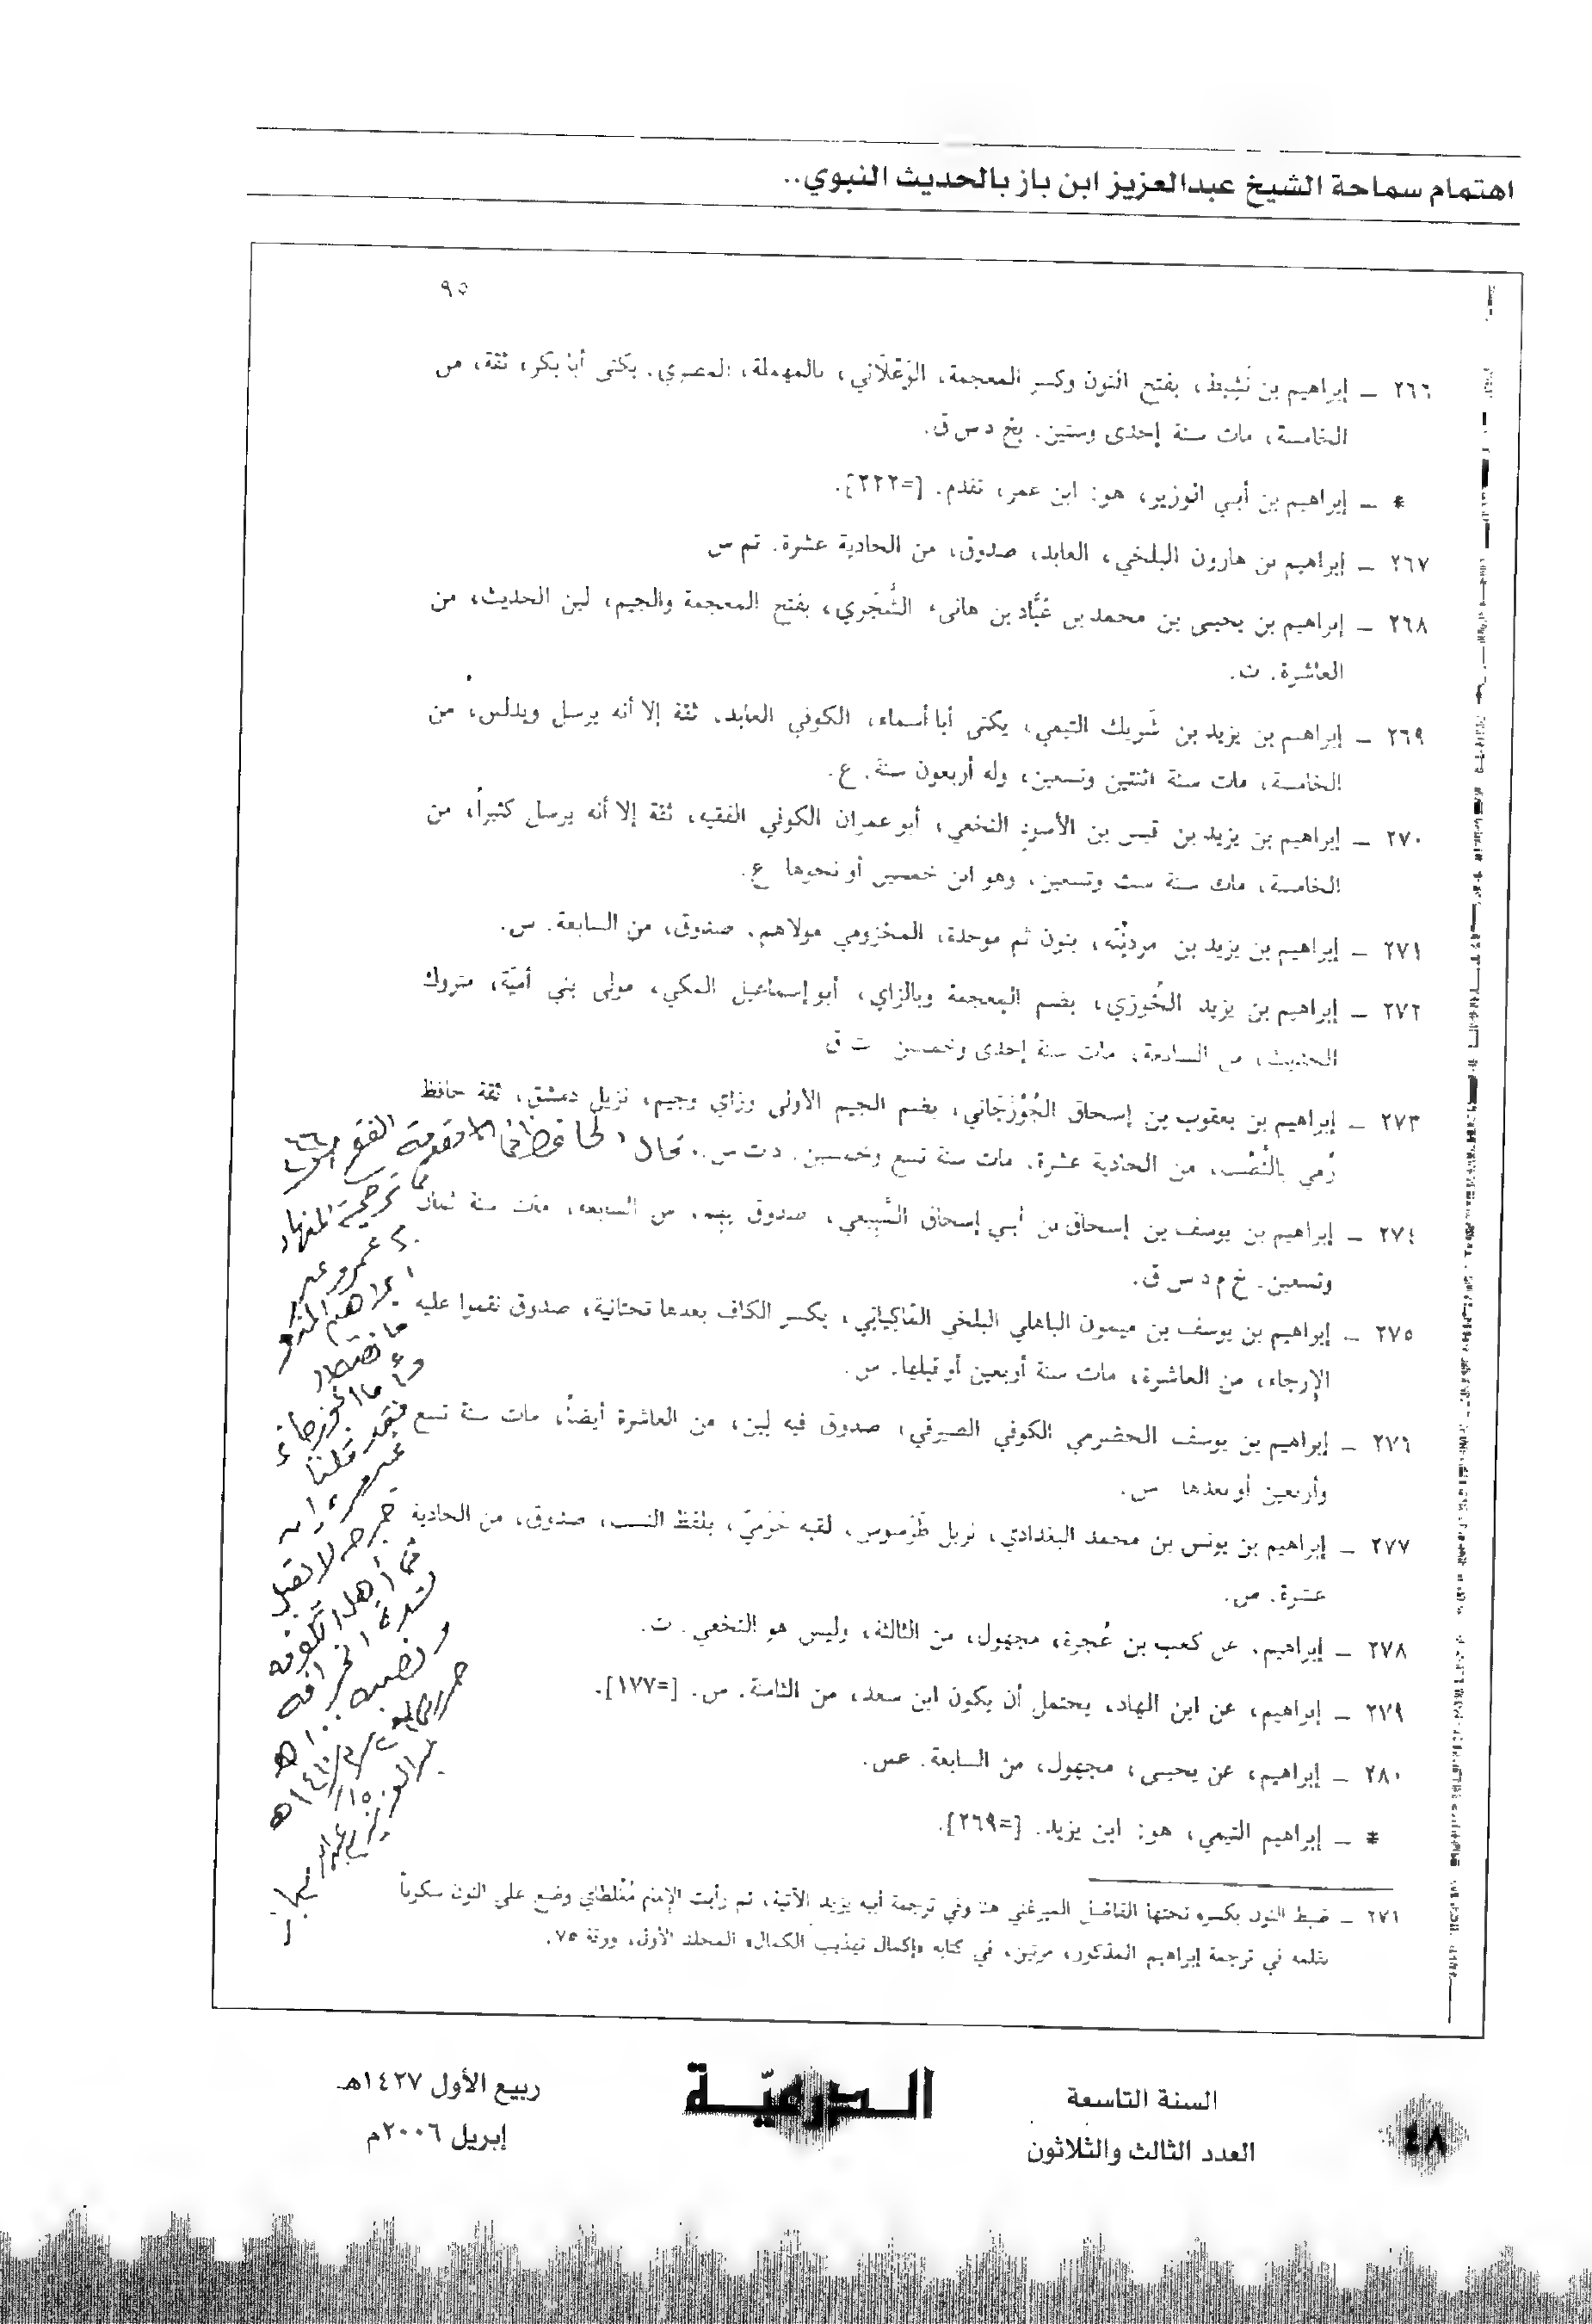 اهتمام سماحة الشيخ عبدالعزيز ابن باز بالحديث النبوي..
٩٥
٢٦٦ – إبراهيم بن نَشِيط، بفتح النون وكسر المعجمة، الوَعْلاني، بالمهملة، المصري. يكنى أبا بكر، ثقة، من
الخامسة، مات سنة إحدى وستين. بخ د س ق.
* – إبراهيم بن أبي الوزير، هو: ابن عمر، تقدم. [=٢٢٢].
٢٦٧ – إبراهيم بن هارون البلخي، العابد، صدوق، من الحادية عشرة. تم س
٢٦٨ – إبراهيم بن يحيى بن محمد بن عَبَّاد بن هانىء الشَّجَري، بفتح المعجمة والجيم، لين الحديث، من
العاشرة. ت.
٢٦٩ – إبراهيم بن يزيد بن شَريك التيمي، يكنى أبا أسماء، الكوفي العابد، ثقة إلا أنه يرسل ويدلس، من
الخامسة، مات سنة اثنتين وتسعين، وله أربعون سنة. ع.
٢٧٠ – إبراهيم بن يزيد بن قيس بن الأسود النخعي، أبو عمران الكوفي الفقيه، ثقة إلا أنه يرسل كثيراً، من
الخامسة، مات سنة ست وتسعين، وهو ابن خمسين أو نحوها ع.
٢٧١ – إبراهيم بن يزيد بن مردانْبَه، بنون ثم موحدة، المخزومي مولاهم. صدوق، من السابعة. س.
٢٧٢ – إبراهيم بن يزيد الخُوزي، بضم المعجمة وبالزاي، أبو إسماعيل المكي، مولى بني أمية، متروك
الحديث، من السابعة، مات سنة إحدى وخمسين ت ق
٢٧٣ – إبراهيم بن يعقوب بن إسحاق الجُوْزَجَاني، بضم الجيم الأولى وزاي وجيم، نزيل دمشق، ثقة حافظ
رُمي بالنَّصْب، من الحادية عشرة. مات سنة تسع وخمسين. د ت س.
قال الحافظ في مقدمة الفتح ص ٤٤٦
في ترجمة المنهال
بن عمرو عن
وأما الجوزجاني
فقد قلنا
غير مرة إن
جرحه لا يقبل
في أهل الكوفة
لشدة انحرافه
ونصبه.. اهـ
عبدالعزيز بن عبدالله بن باز
٢٧٤ – إبراهيم بن يوسف بن إسحاق بن أبي إسحاق السَّبِيعي، صدوق يهم، من السابعة، مات سنة ثمان
وتسعين. خ م د س ق.
٢٧٥ – إبراهيم بن يوسف بن ميمون الباهلي البلخي الماكِياني، بكسر الكاف بعدها تحتانية، صدوق نقموا عليه
الإرجاء، من العاشرة، مات سنة أربعين أو قبلها. س.
٢٧٦ – إبراهيم بن يوسف الحضرمي الكوفي الصيرفي، صدوق فيه لين، من العاشرة أيضاً، مات سنة تسع
وأربعين أو بعدها س.
٢٧٧ – إبراهيم بن يونس بن محمد البغدادي، نزيل طَرَسوس، لقبه حَرَميّ، بلفظ النسب، صدوق، من الحادية
عشرة. س.
٢٧٨ – إبراهيم. عن كعب بن عُجرة، مجهول، من الثالثة، وليس هو النخعي. ت.
٢٧٩ – إبراهيم، عن ابن الهاد، يحتمل أن يكون ابن سعد، من الثامنة. س. [=١٧٧].
٢٨٠ – إبراهيم، عن يحيى، مجهول، من السابعة. عس.
* – إبراهيم التيمي، هو: ابن يزيد. [=٢٦٩].
٢٧١ – ضبط النون بكسرة تحتها الفاضل الميرغني هنا وفي ترجمة أبيه يزيد الآتية، ثم رأيت الإمام مُغْلطاي وضع على النون سكوناً
بقلمه في ترجمة إبراهيم المذكور، مرتين، في كتابه «إكمال تهذيب الكمال» المجلد الأول، ورقة ٧٥.
٤٨
السنة التاسعة
العدد الثالث والثلاثون
الـدرعيّـة
ربيع الأول ١٤٢٧هـ
إبريل ٢٠٠٦م